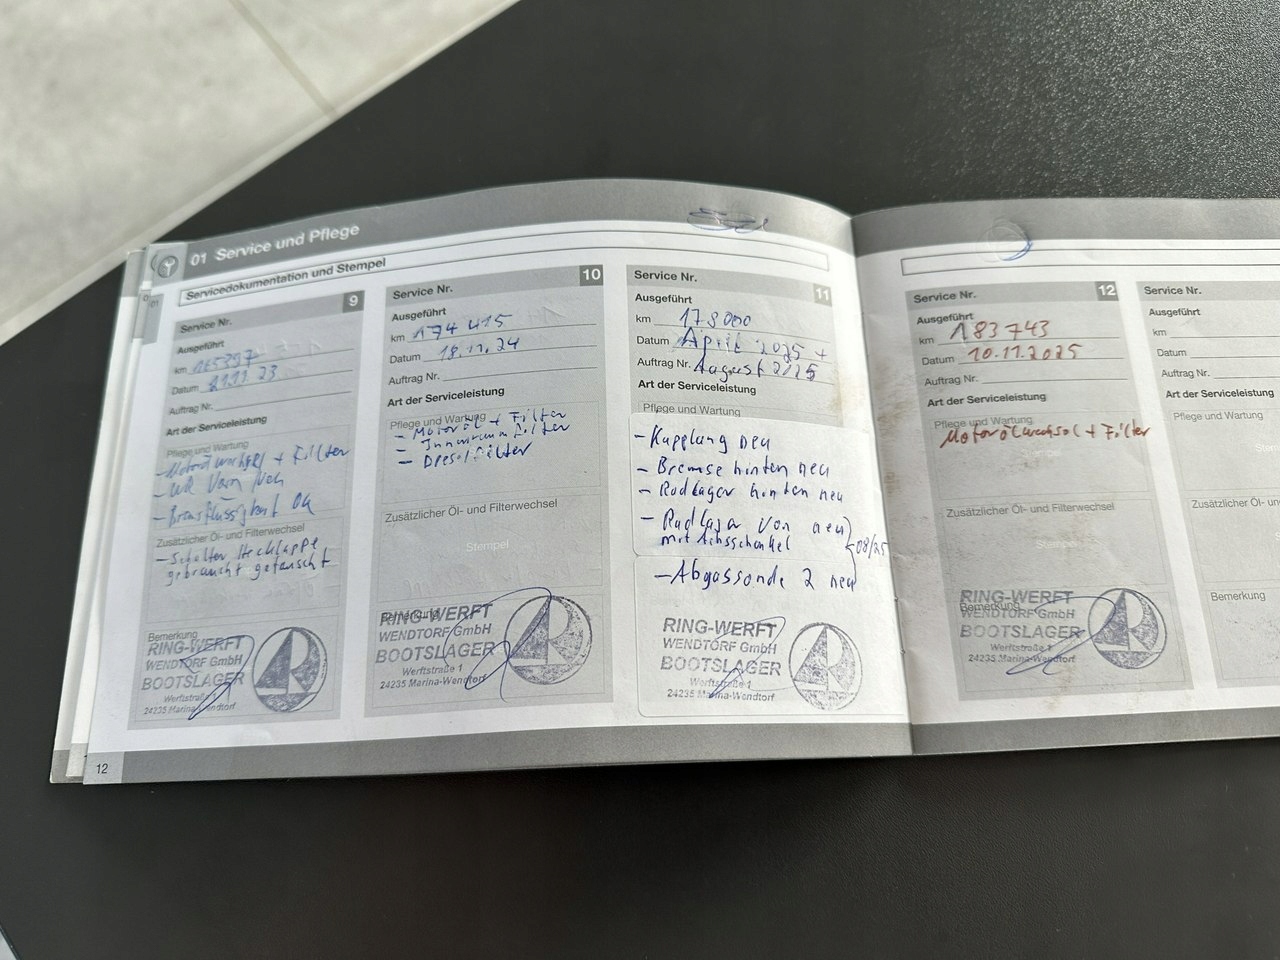 01 Service und Pflege
Servicedokumentation und Stempel
9
Service Nr.
Ausgeführt
km
Datum 21.11.23
Auftrag Nr.
Art der Serviceleistung
Pflege und Wartung
+ Filter
-
- Bremsflüssigkeit
Zusätzlicher Öl- und Filterwechsel
- Schalter Heckklappe
gebraucht getauscht
Bemerkung
RING-WERFT
WENDTORF GmbH
BOOTSLAGER
Werftstraße 1
24235 Marina-Wendtorf
10
Service Nr.
Ausgeführt
km 174 415
Datum 18.11.24
Auftrag Nr.
Art der Serviceleistung
Pflege und Wartung
- Motoröl + Filter
- Innenraum Filter
- Diesel filter
Zusätzlicher Öl- und Filterwechsel
Stempel
Bemerkung
RING-WERFT
WENDTORF GmbH
BOOTSLAGER
Werftstraße 1
24235 Marina-Wendtorf
11
Service Nr.
Ausgeführt
km 178000
Datum April 2025 +
Auftrag Nr. August 2025
Art der Serviceleistung
Pflege und Wartung
- Kupplung neu
- Bremse hinten neu
- Radlager hinten neu
- Radlager Von neu
mit Achsschenkel
08/25
- Abgassonde 2 neu
RING-WERFT
WENDTORF GmbH
BOOTSLAGER
Werftstraße 1
24235 Marina-Wendtorf
12
Service Nr. 12
Ausgeführt
km 183743
Datum 10.11.2025
Auftrag Nr.
Art der Serviceleistung
Pflege und Wartung
Motorölwechsel + Filter
Stempel
Zusätzlicher Öl- und Filterwechsel
Stempel
Bemerkung
RING-WERFT
WENDTORF GmbH
BOOTSLAGER
Werftstraße 1
24235 Marina-Wendtorf
Service Nr.
Ausgeführt
km
Datum
Auftrag Nr.
Art der Serviceleistung
Pflege und Wartung
Zusätzlicher Öl- un
Bemerkung